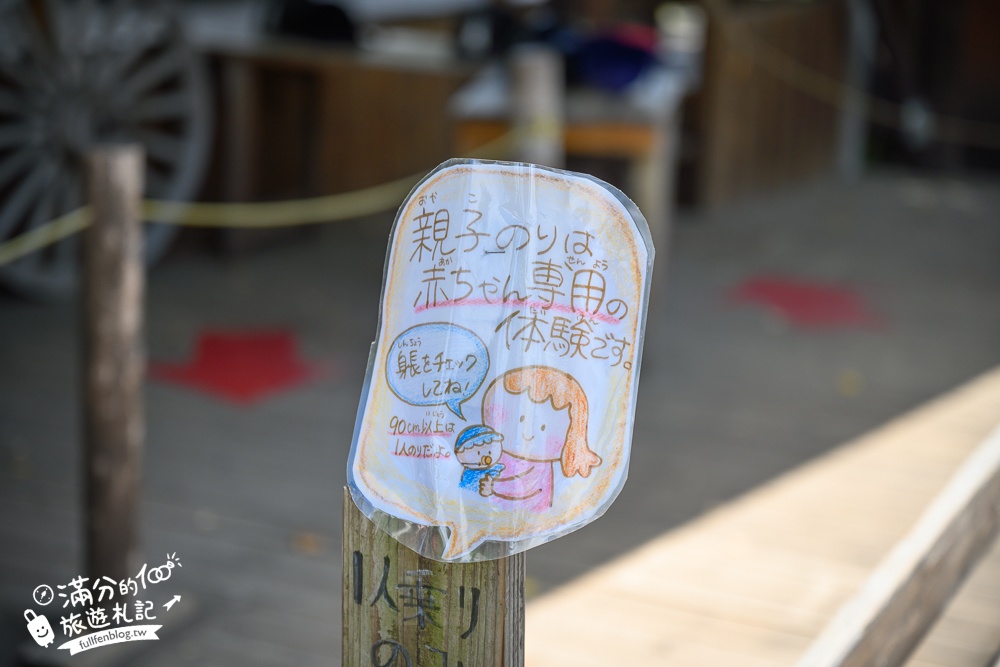 おや こ
親子のりは
あか せん よう
赤ちゃん専用の
体験です。
しんちょう
身長をチェック
してね!
いじょう
90cm以上は
1人のりだよ。
満分的100
旅遊札記
fullfenblog.tw